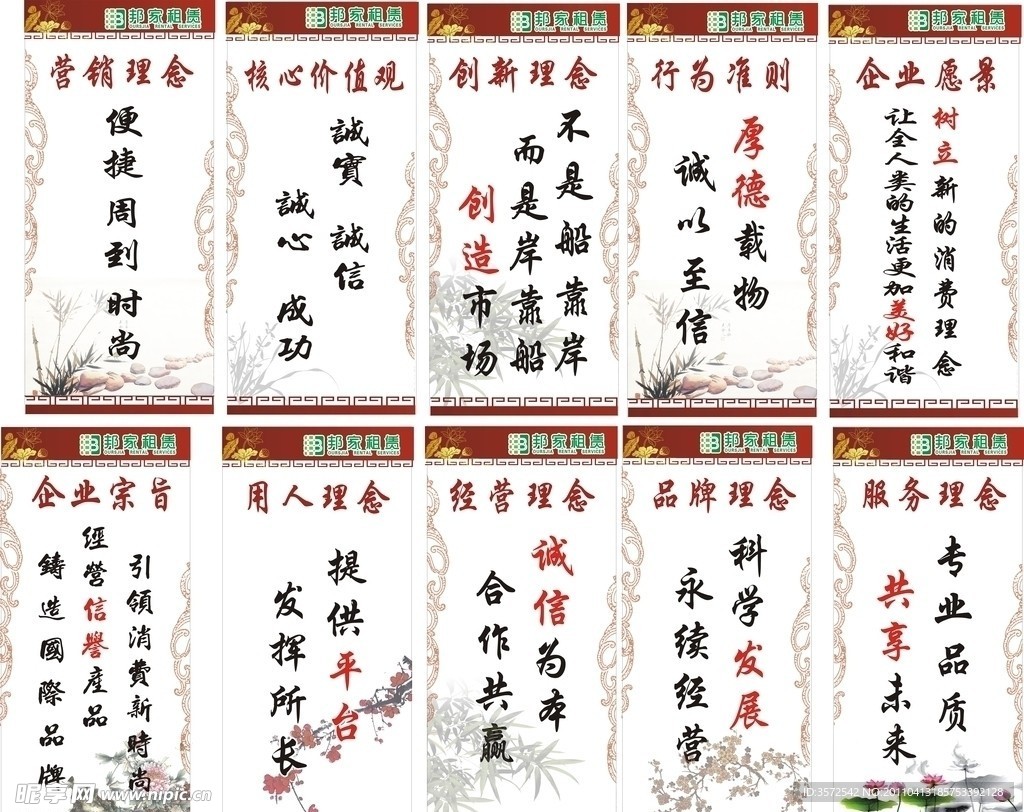 邦家租赁
OURSJIA RENTAL SERVICES
营销理念
便捷周到时尚
邦家租赁
OURSJIA RENTAL SERVICES
核心价值观
誠實 誠信
誠心 成功
邦家租赁
OURSJIA RENTAL SERVICES
创新理念
不是船靠岸
而是岸靠船
创造市场
邦家租赁
OURSJIA RENTAL SERVICES
行为准则
厚德载物
诚以至信
邦家租赁
OURSJIA RENTAL SERVICES
企业愿景
树立新的消费理念
让全人类的生活更加美好和谐
邦家租赁
OURSJIA RENTAL SERVICES
企业宗旨
引領消費新時尚
經營信譽産品
鑄造國際品牌
邦家租赁
OURSJIA RENTAL SERVICES
用人理念
提供平台
发挥所长
邦家租赁
OURSJIA RENTAL SERVICES
经营理念
诚信为本
合作共赢
邦家租赁
OURSJIA RENTAL SERVICES
品牌理念
科学发展
永续经营
邦家租赁
OURSJIA RENTAL SERVICES
服务理念
专业品质
共享未来
昵享网 www.nipic.cn
ID:3572542 NO:20110413185753392128